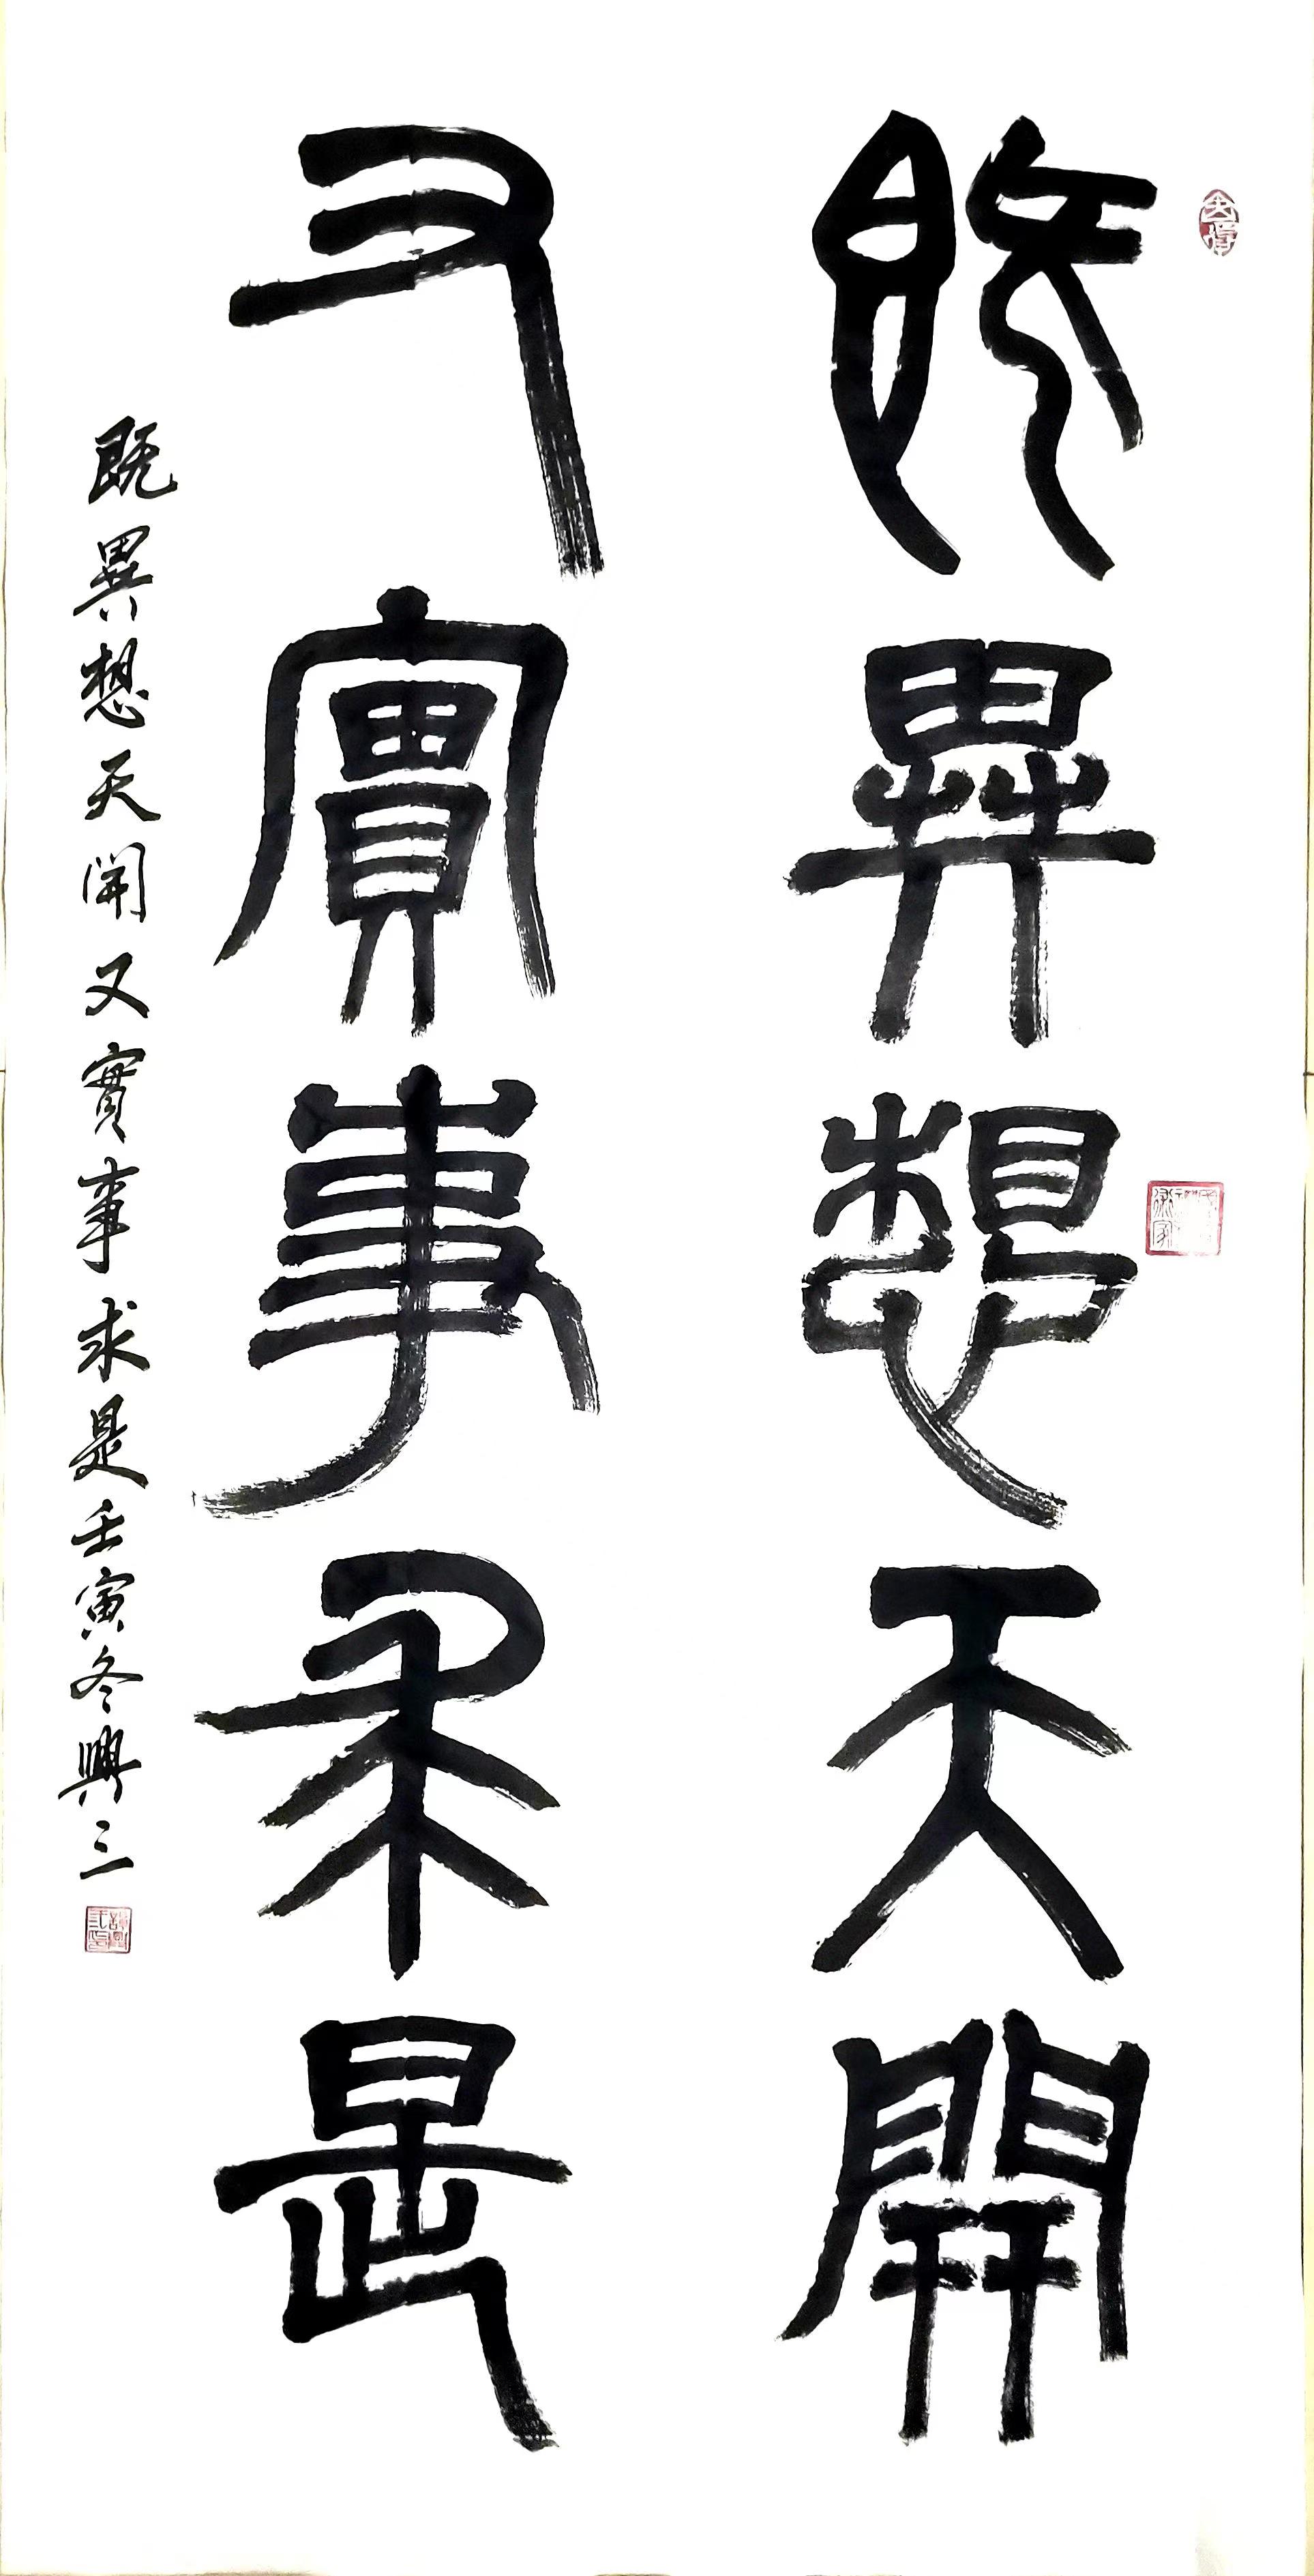 既異想天開
又實事求是
既異想天開又實事求是壬寅冬興三